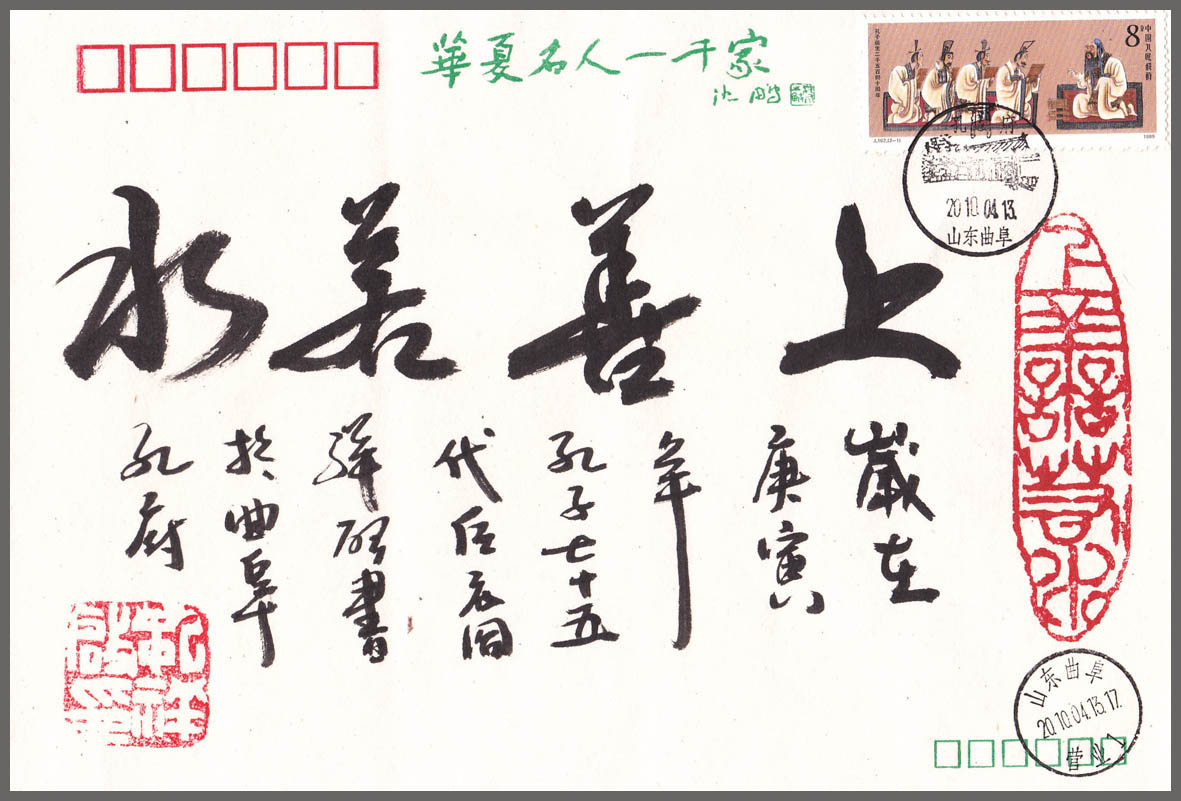 華夏名人一千家
沈鹏
8分
中国人民邮政
孔子诞生二千五百四十周年
J.162.(2-1)
1989
孔府
2010.04.13.
山东曲阜
上善若水
上善若水
歲在
庚寅
年
孔子七十五
代后裔
祥 書
於曲阜
孔府
孔祥 印
山东曲阜
2010.04.13.17.
营业1